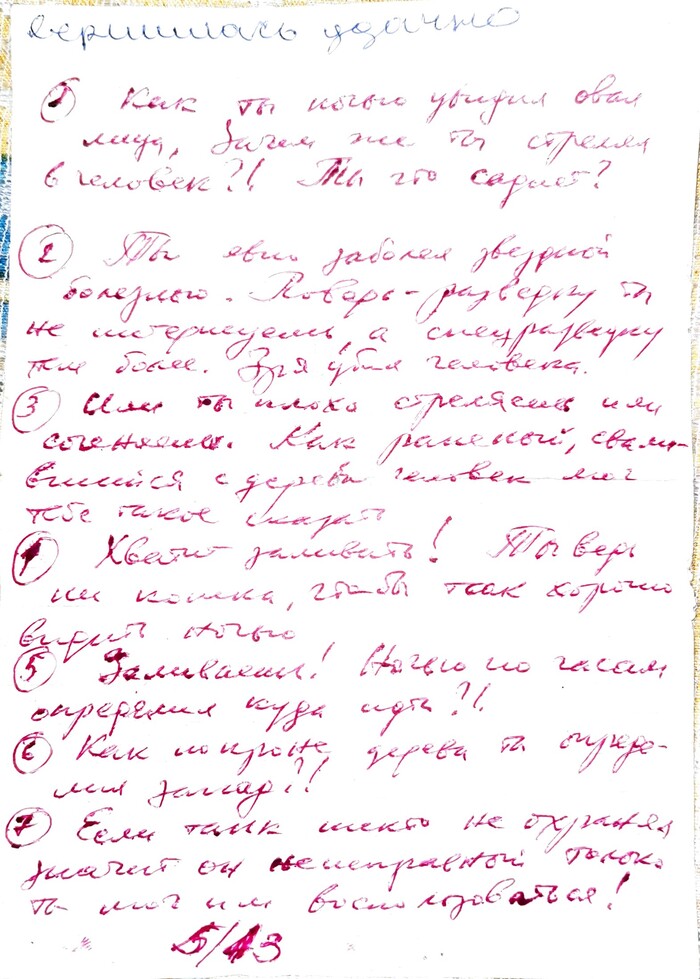 вершилась удачно
① Как ты ночью увидил овал
лица, Зачем же ты стрелял
в человек?!! Ты что садист?
② Ты явно заболел звездной
болезнью. Повара-разведку ты
не интересуешь, а спецразведку
тем более. Зря убил человека.
③ Или ты плохо стреляешь или
сочиняешь. Как раненый, свали-
вшийся с дерева человек мог
тебе такое сказать
④ Хватит заливать! Ты ведь
ни кошка, чтобы так хорошо
видить ночью
⑤ Заливаешь! Ночью по часам
определил куда идти?!!
⑥ Как по кроне дерева ты опреде-
лил запад?!!
⑦ Если танк никто не охранял
значит он неисправный только
ты мог им воспользоваться!
5/13